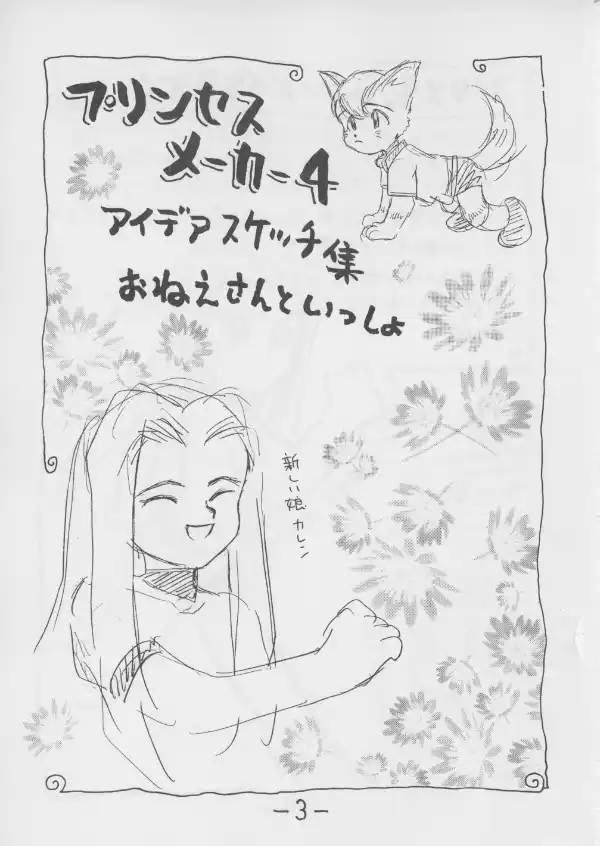 プリンセス
メーカー4
アイデアスケッチ集
おねえさんといっしょ
新しい娘カレン
-3-